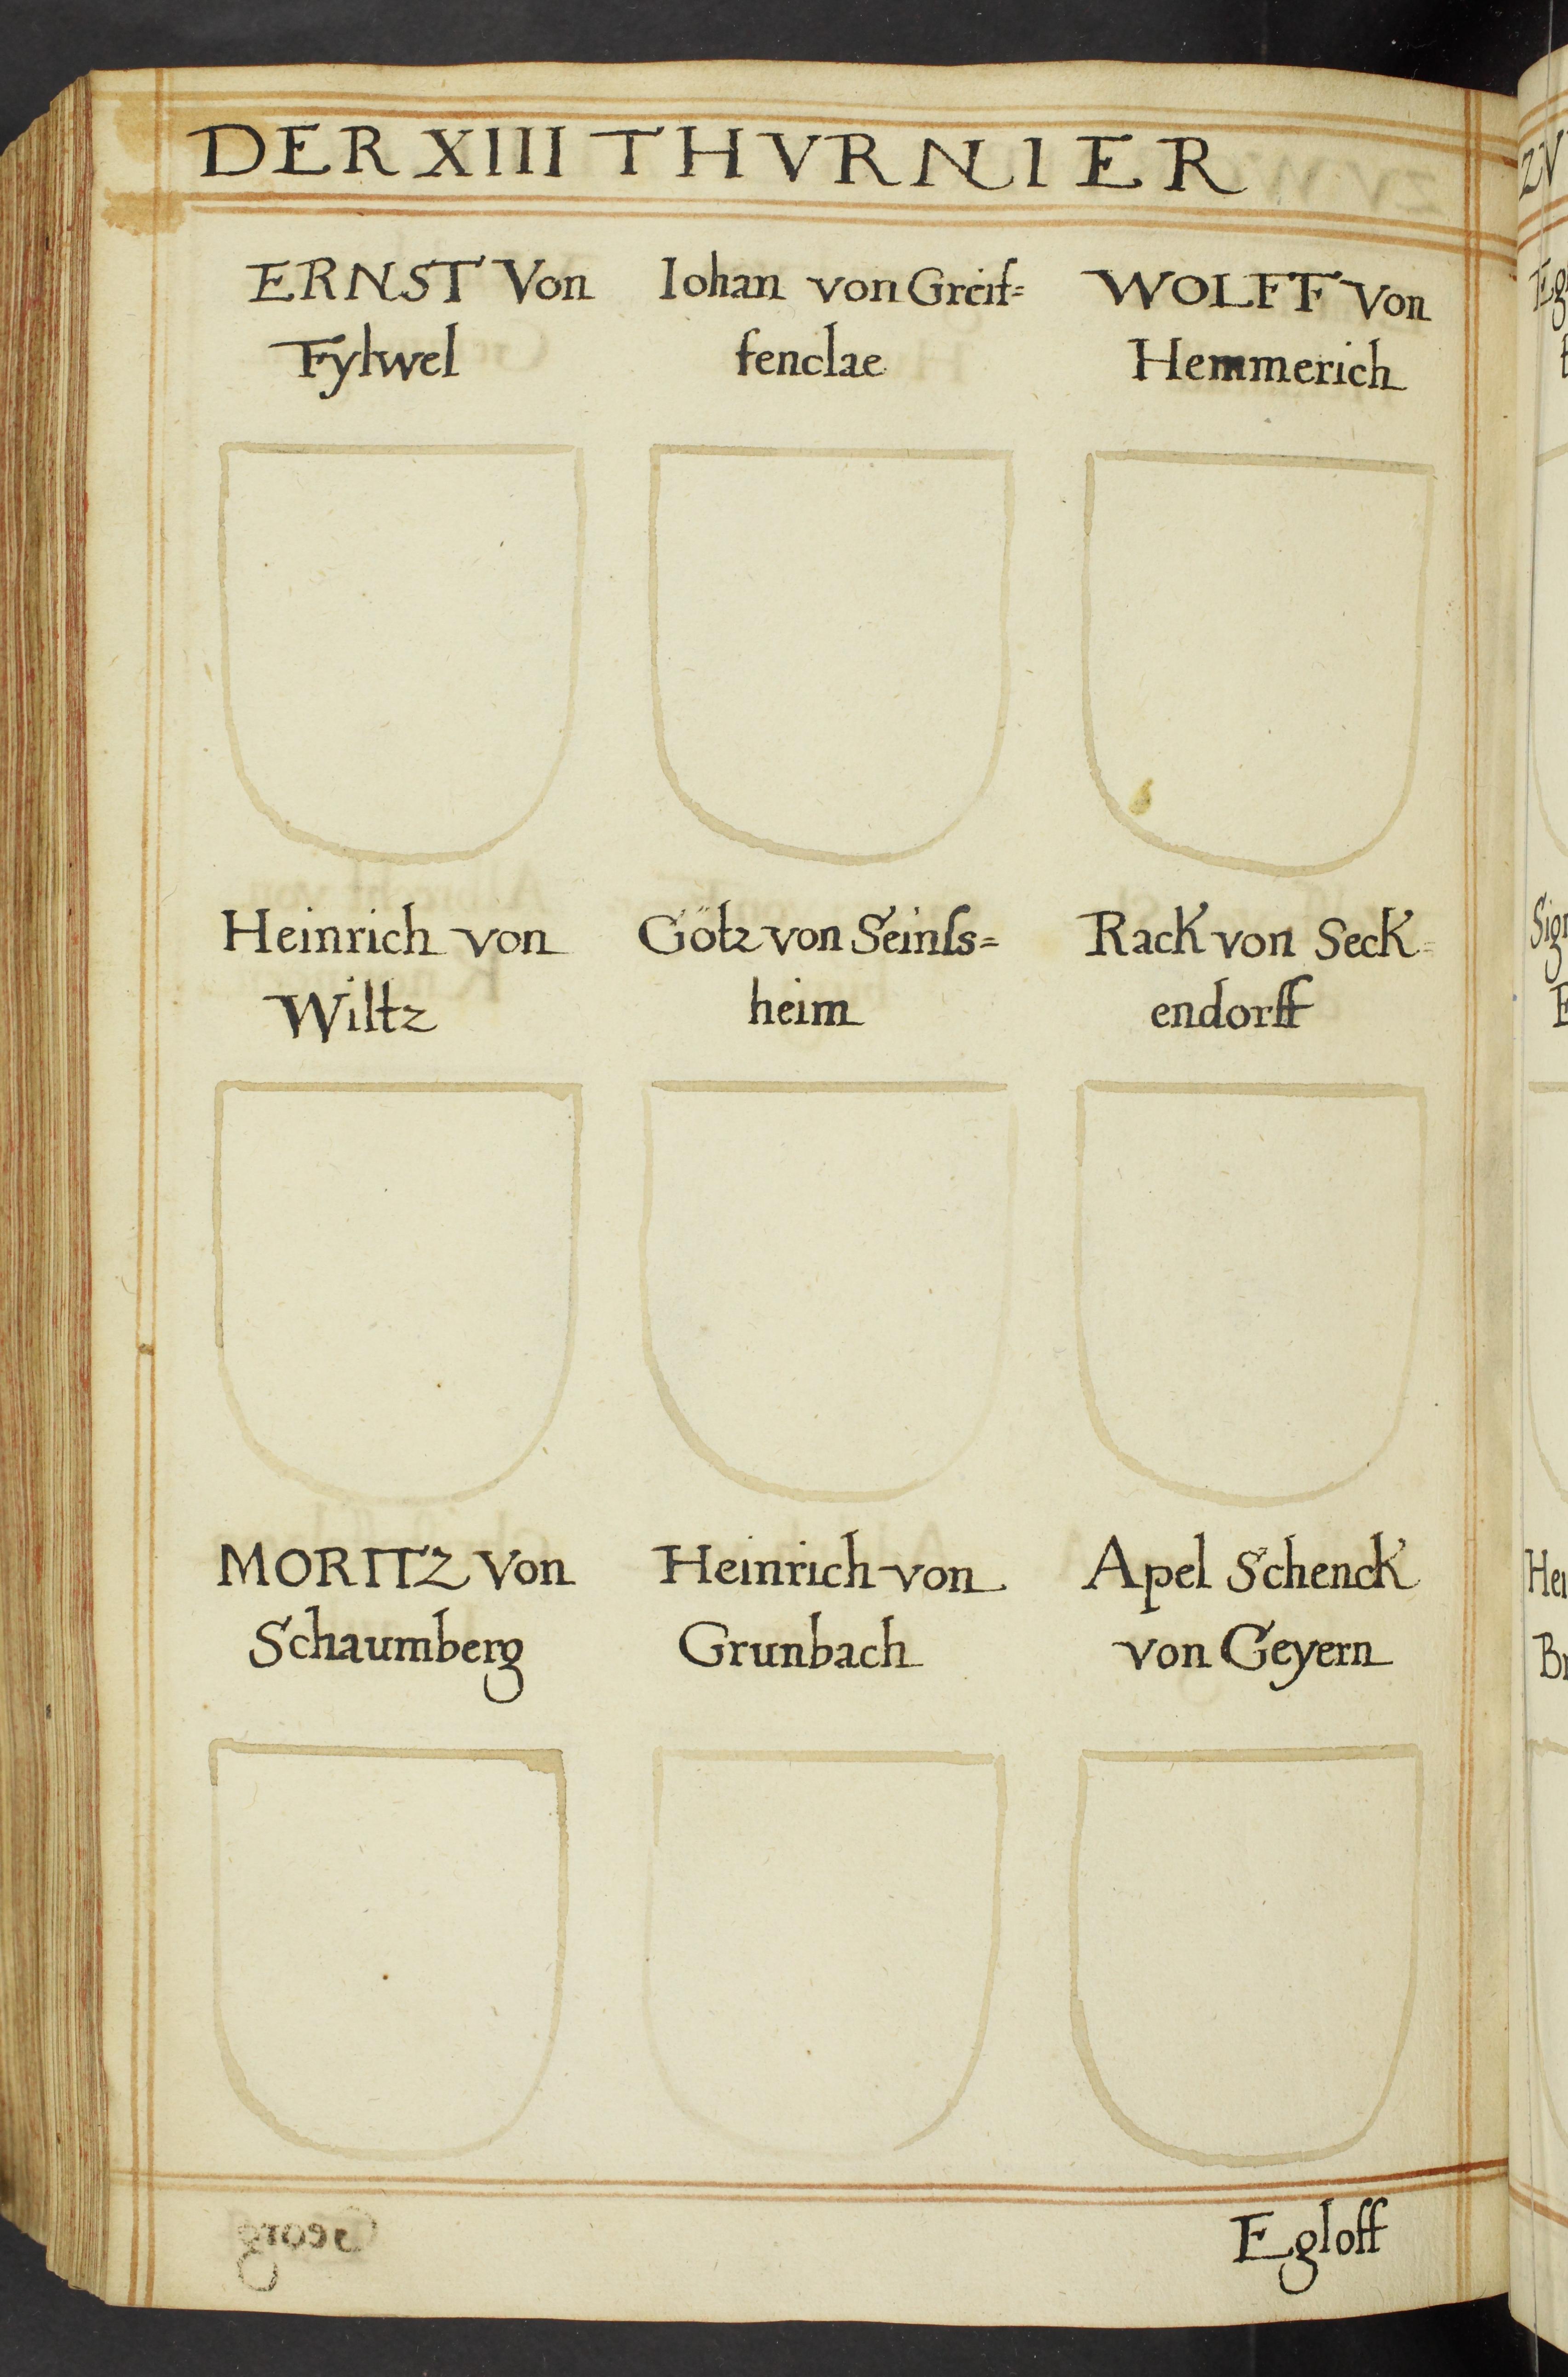 DER XIIII THVRNIER
ERNST Von
Fylwel
Iohan von Greif=
fenclae
WOLFF Von
Hemmerich
Heinrich von
Wiltz
Götz von Seinſs=
heim
Rack von Seck=
endorff
MORITZ Von
Schaumberg
Heinrich von
Grunbach
Apel Schenck
von Geyern
Egloff